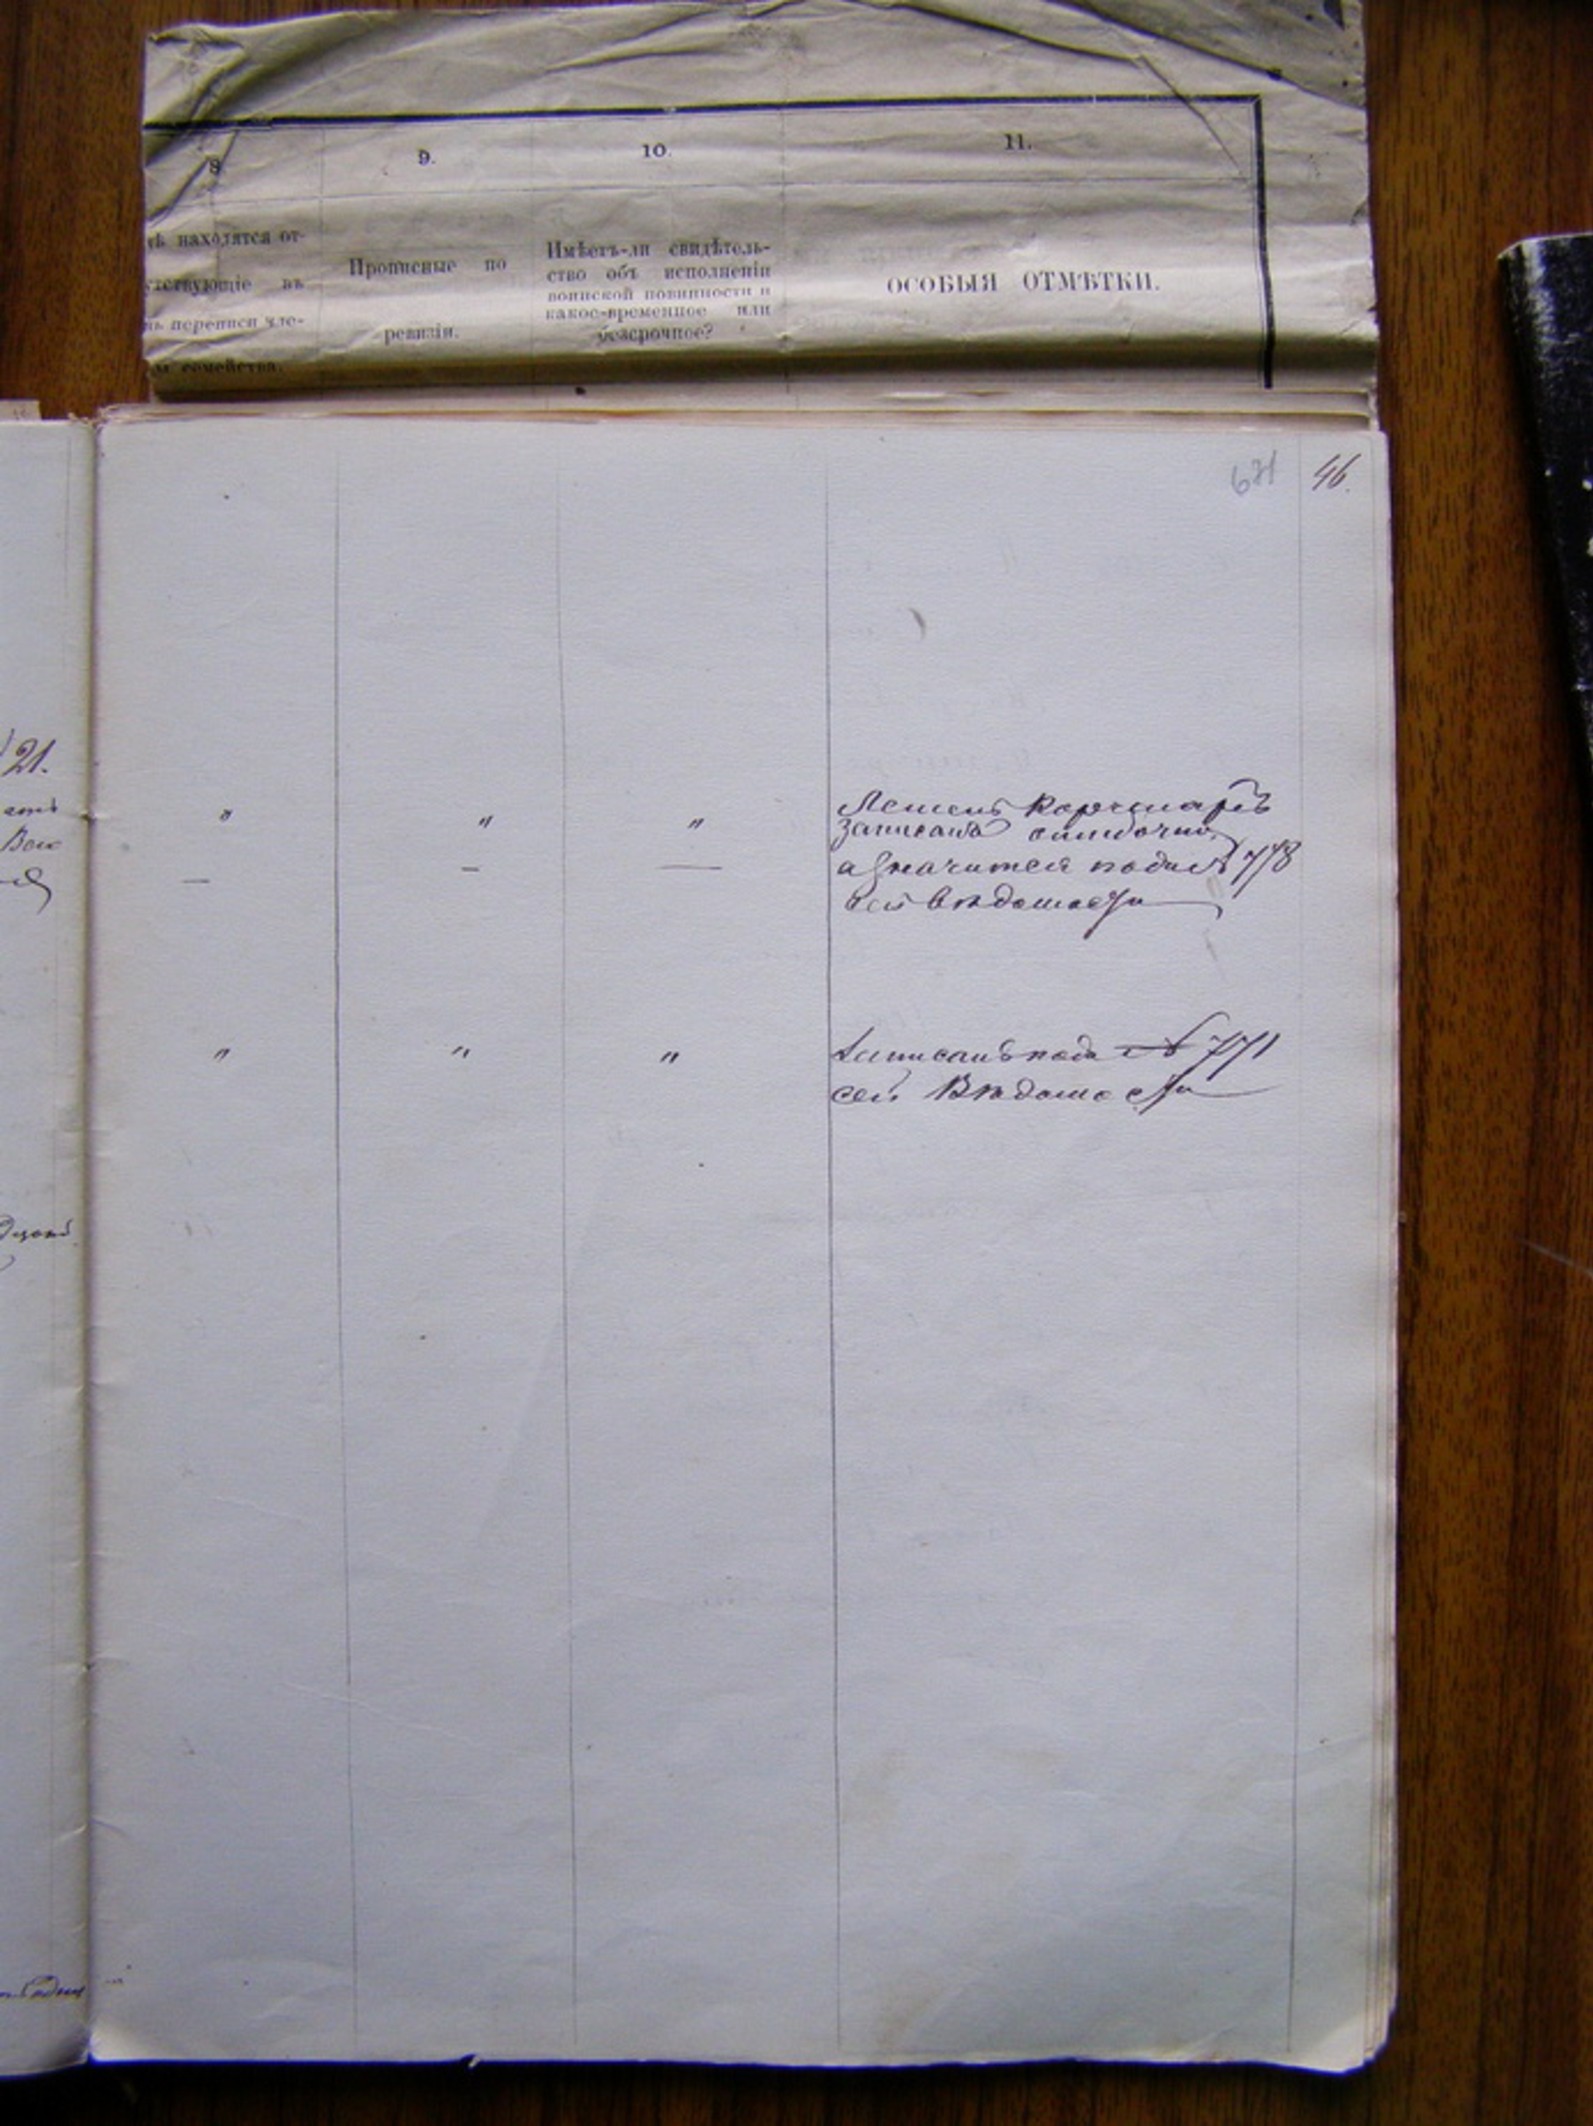 8. 9. 10. 11.
тѣ находятся от-
утствующіе въ
нь переписи чле-
семейства.
Прописные по
ревизіи.
Имѣетъ-ли свидѣтель-
ство объ исполненіи
воинской повинности и
какое-временное или
безсрочное?
ОСОБЫЯ ОТМѢТКИ.
671 46.
21.
" " "
— — —
Корчмарь
записанъ ошибочно,
а значится подъ № 778
сей вѣдомости
" " "
Записанъ подъ № 771
сей Вѣдомости